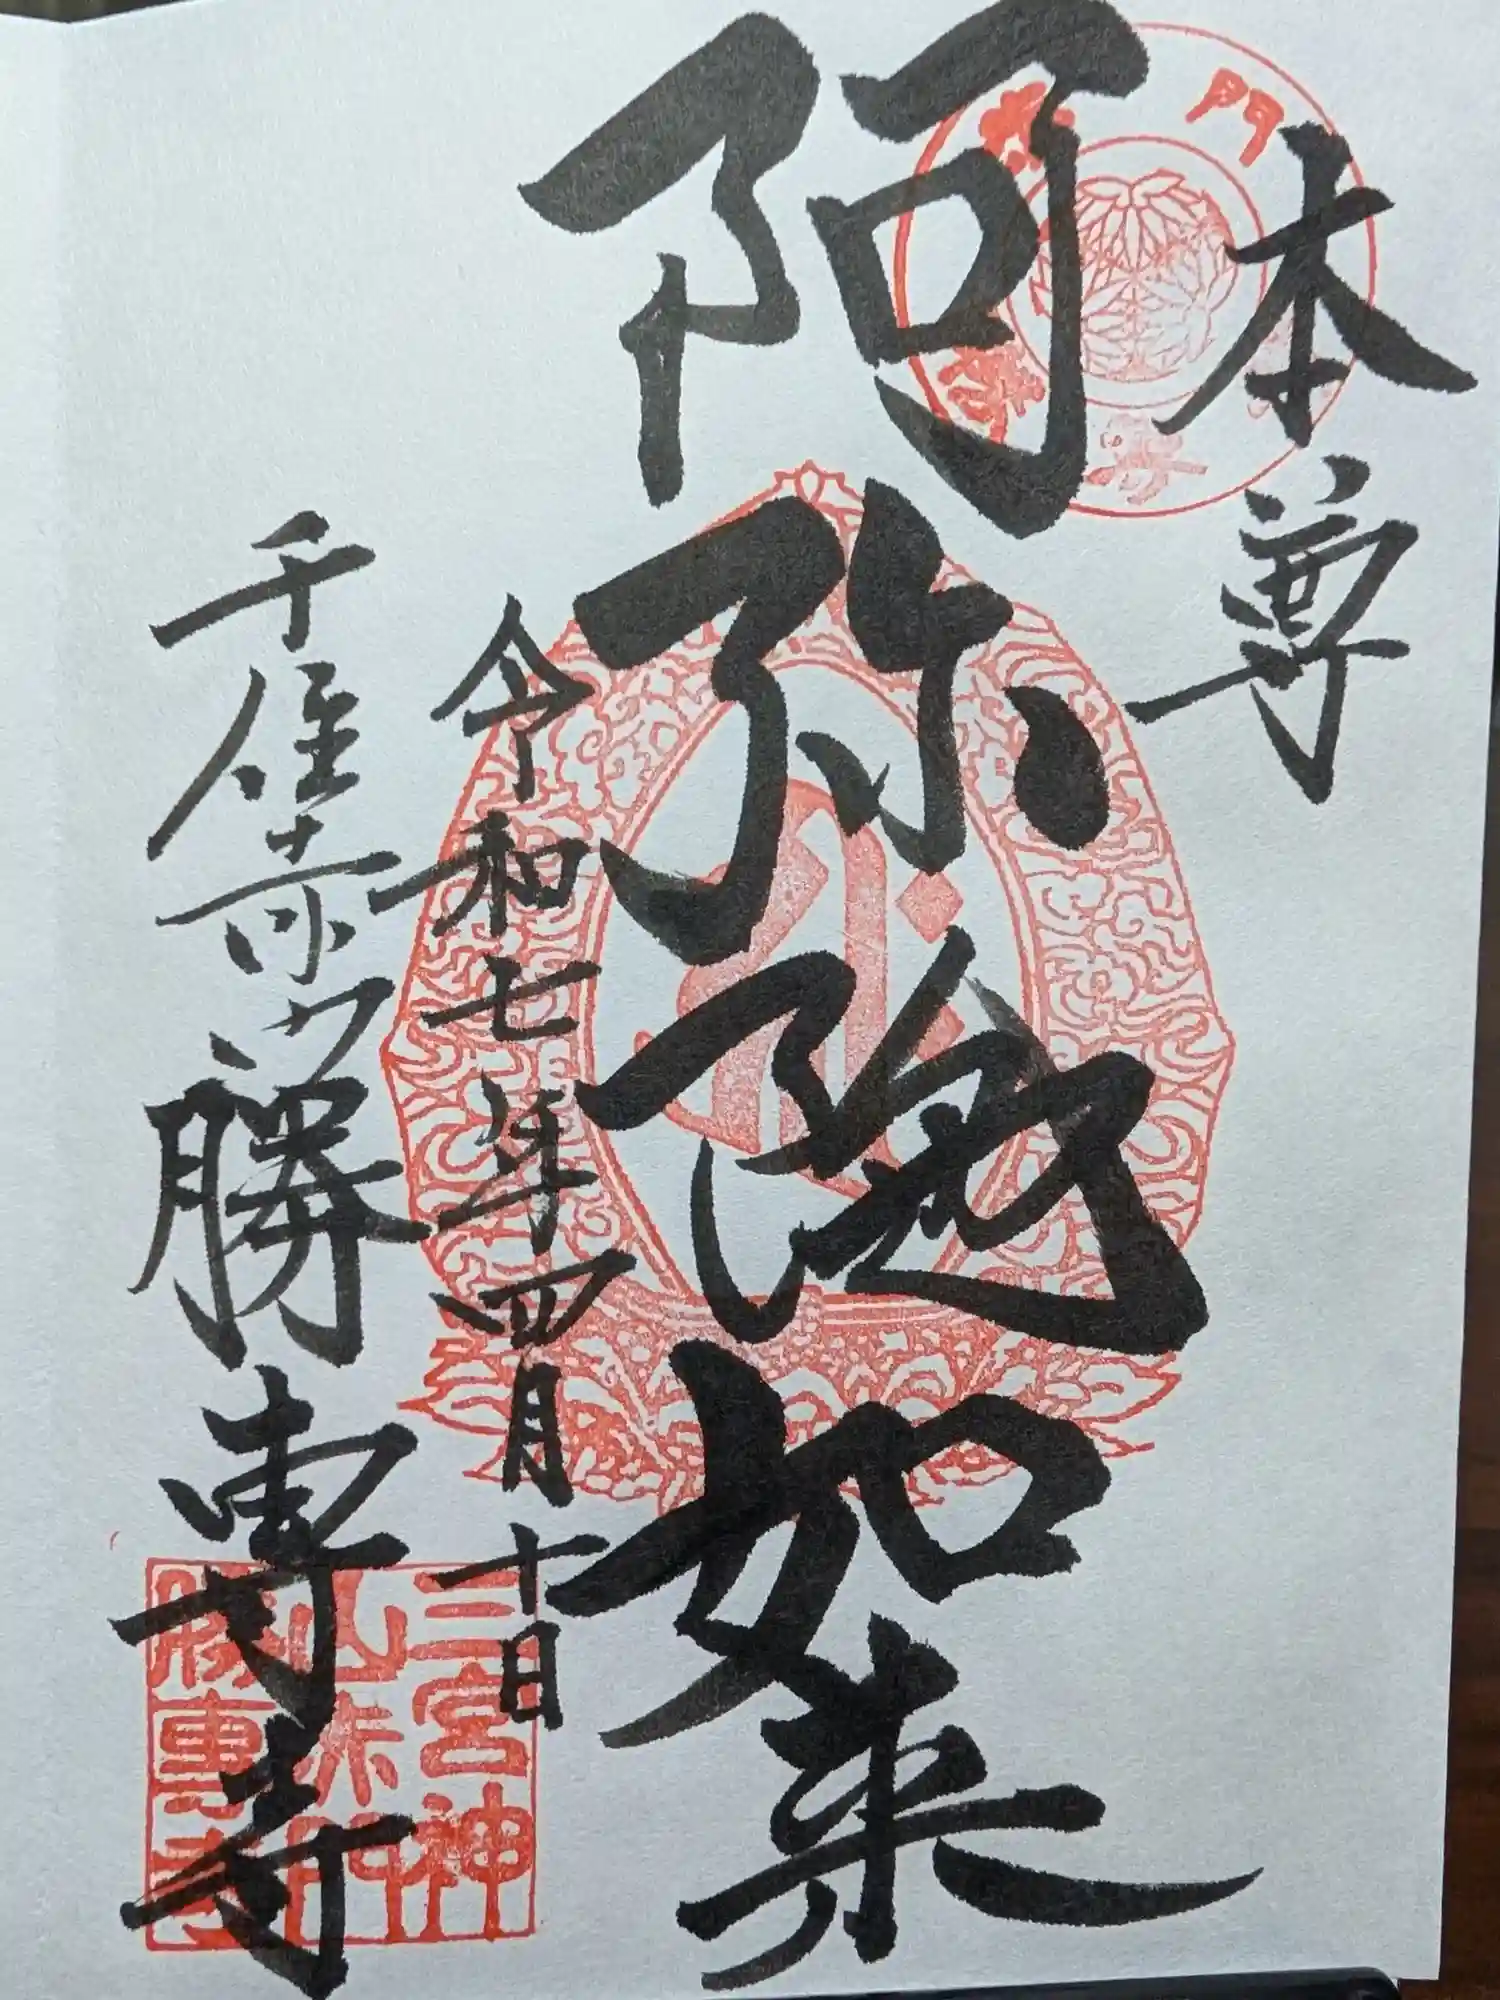 本尊
阿弥陀如来
令和七年四月十日
千住赤門勝專寺
三宮神
山赤門
勝專寺